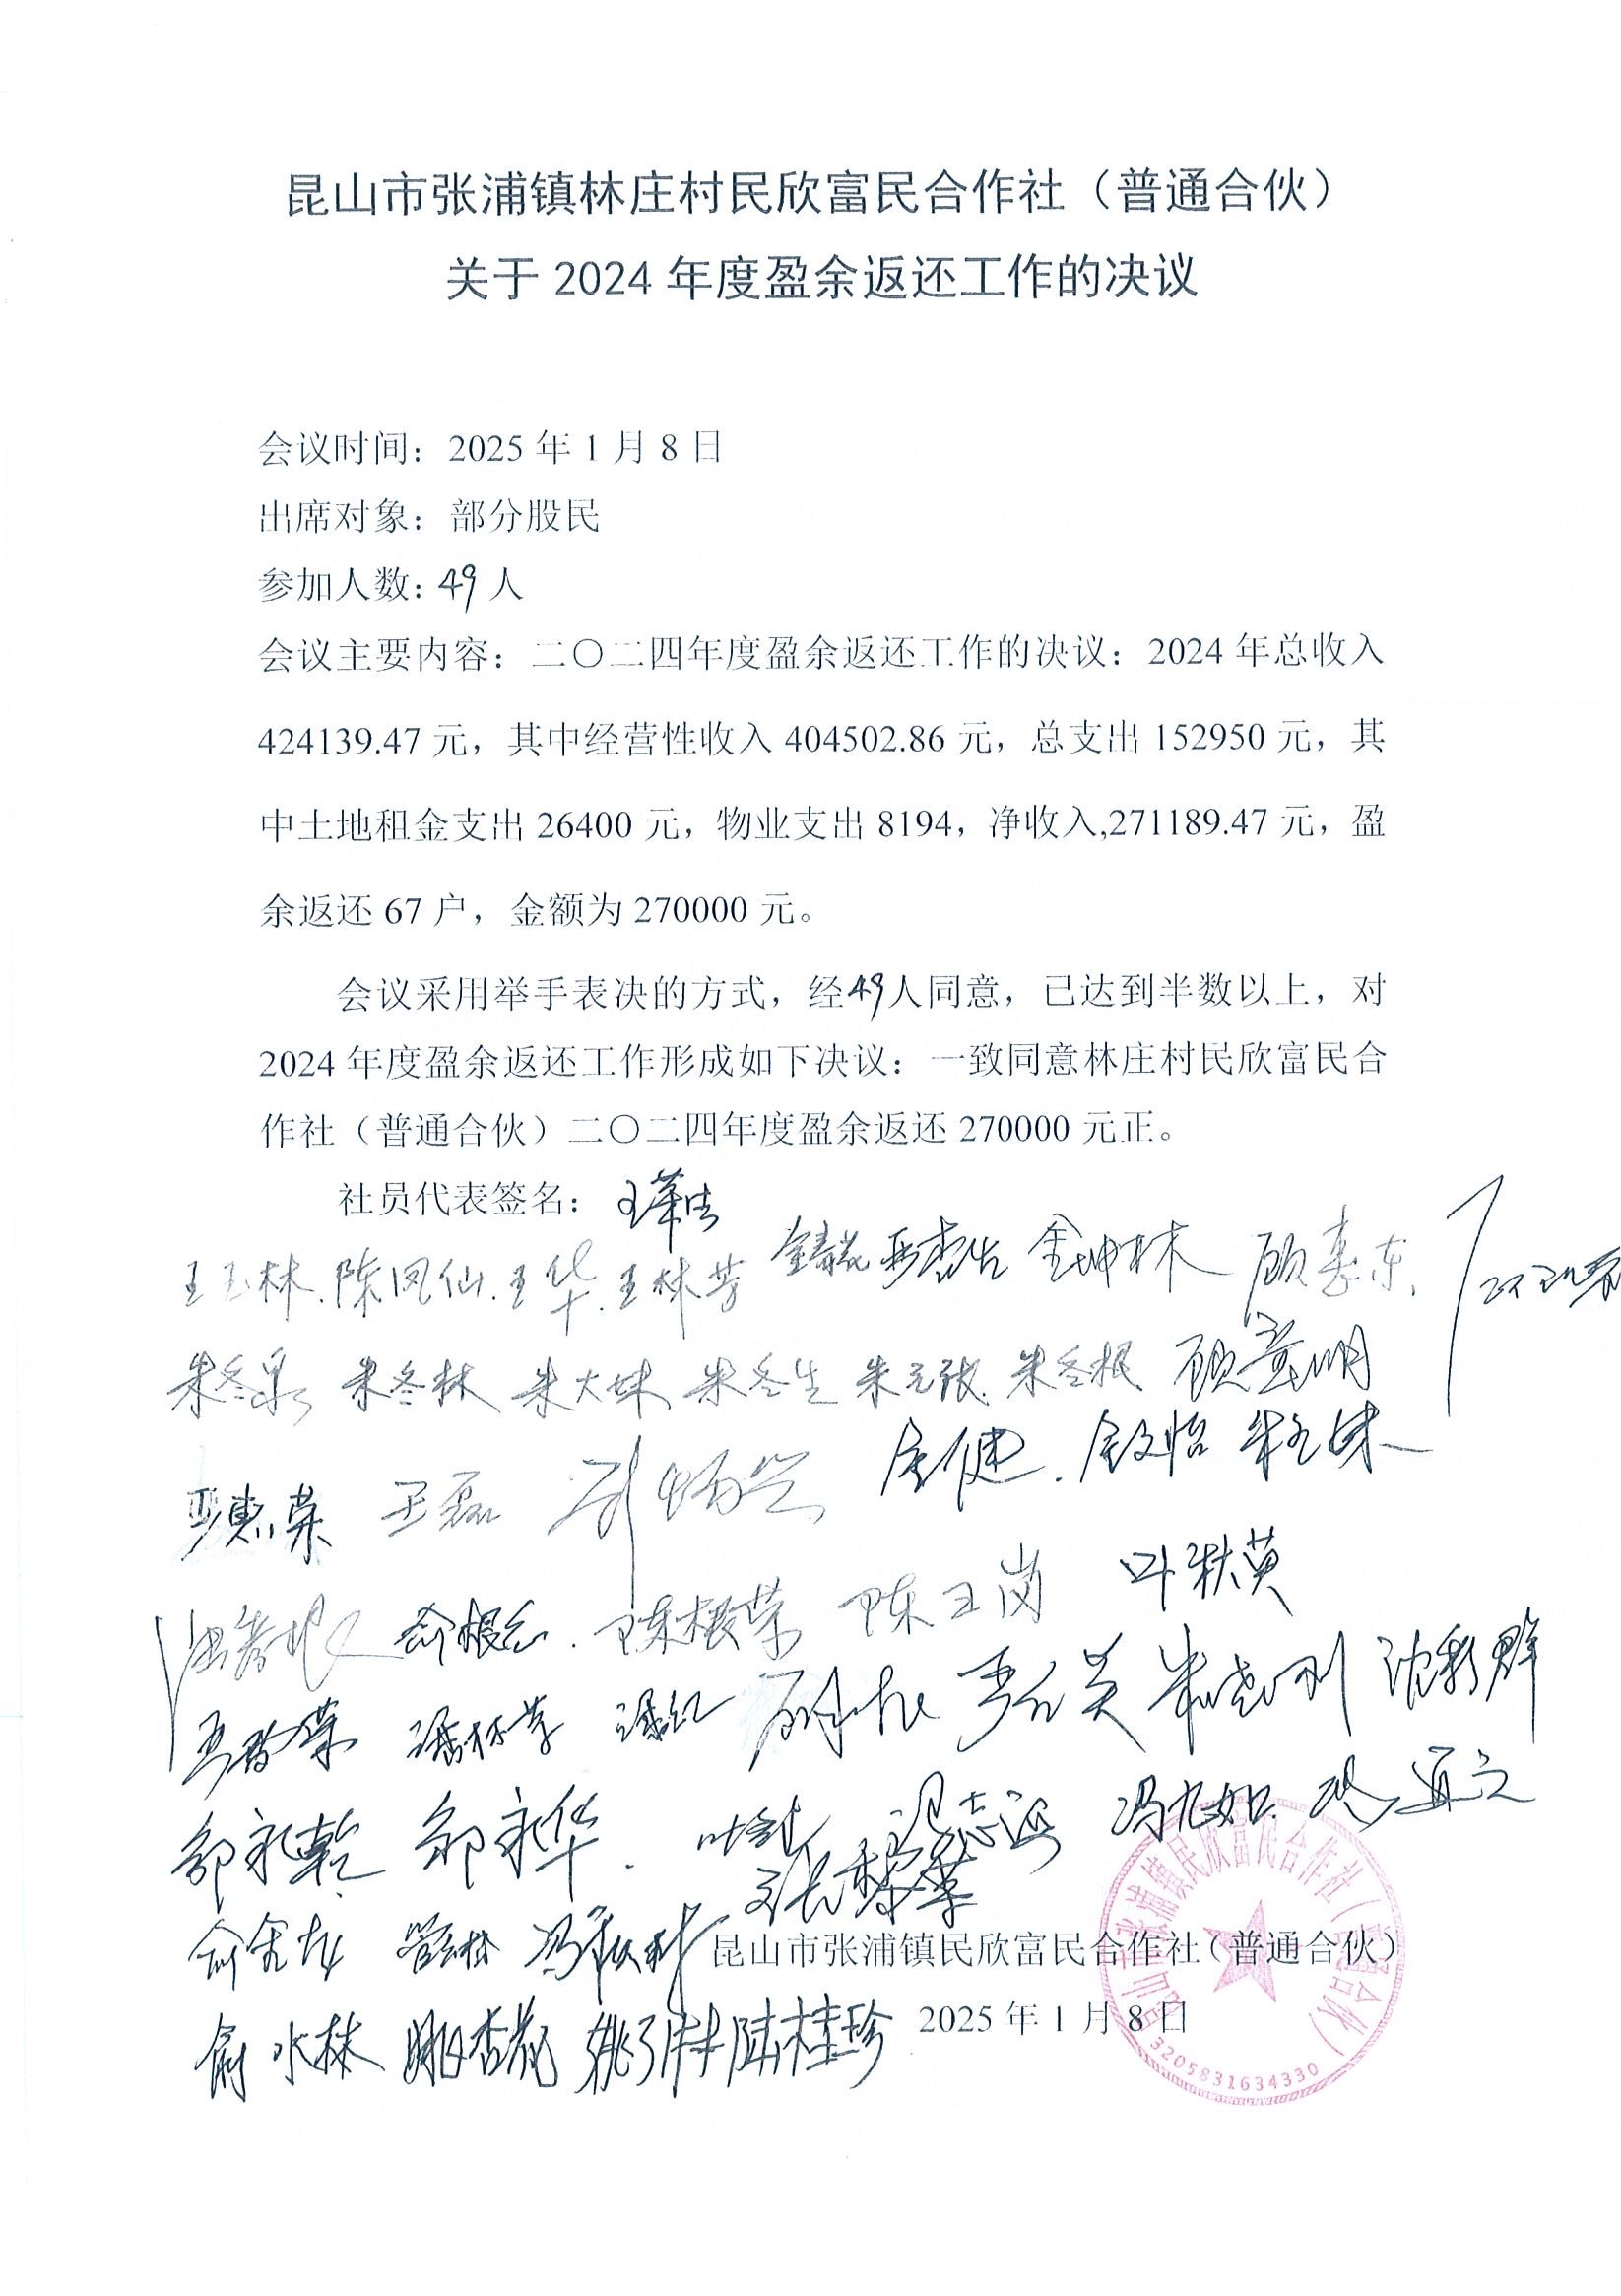 昆山市张浦镇林庄村民欣富民合作社（普通合伙）
关于 2024 年度盈余返还工作的决议
会议时间：2025 年 1 月 8 日
出席对象：部分股民
参加人数：49 人
会议主要内容：二〇二四年度盈余返还工作的决议：2024 年总收入
424139.47 元，其中经营性收入 404502.86 元，总支出 152950 元，其
中土地租金支出 26400 元，物业支出 8194，净收入,271189.47 元，盈
余返还 67 户，金额为 270000 元。
会议采用举手表决的方式，经49人同意，已达到半数以上，对
2024 年度盈余返还工作形成如下决议：一致同意林庄村民欣富民合
作社（普通合伙）二〇二四年度盈余返还 270000 元正。
社员代表签名：
王玉林 陈凤仙 王华 王林芳 金坤林 顾惠东
朱冬泉 朱冬林 朱大妹 朱冬生 朱元弟 朱冬根 顾童明
严惠荣 王磊 金健
俞根云 陈根荣 陈卫岗 叶秋英
朱志刚 沈彩群
邹永乾 邹永华
俞金龙 管云林 冯秋林
昆山市张浦镇民欣富民合作社（普通合伙）
俞水林 姚杏花 姚引林 陆桂珍
2025 年 1 月 8 日
昆山市张浦镇民欣富民合作社（普通合伙）
3205831634330